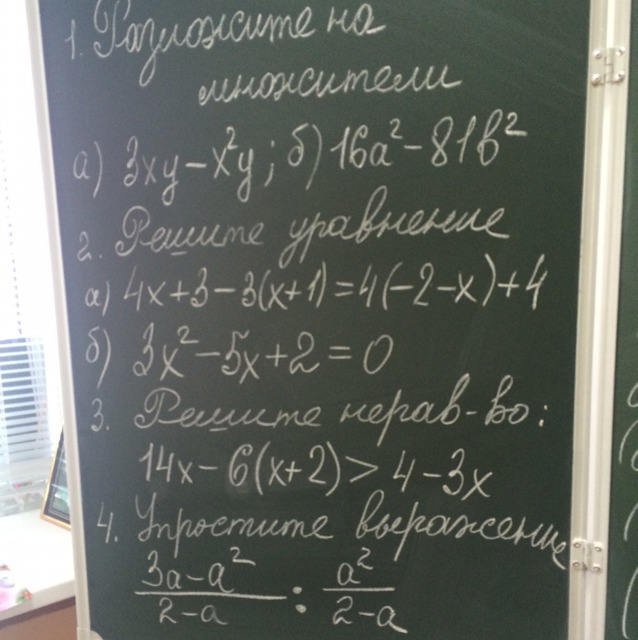 1. Разложите на
множители
а) 3xy – x²y; б) 16a² – 81b²
2. Решите уравнение
а) 4x + 3 – 3(x + 1) = 4(–2 – x) + 4
б) 3x² – 5x + 2 = 0
3. Решите нерав-во:
14x – 6(x + 2) > 4 – 3x
4. Упростите выражение
(3a – a²)/(2 – a) : a²/(2 – a)